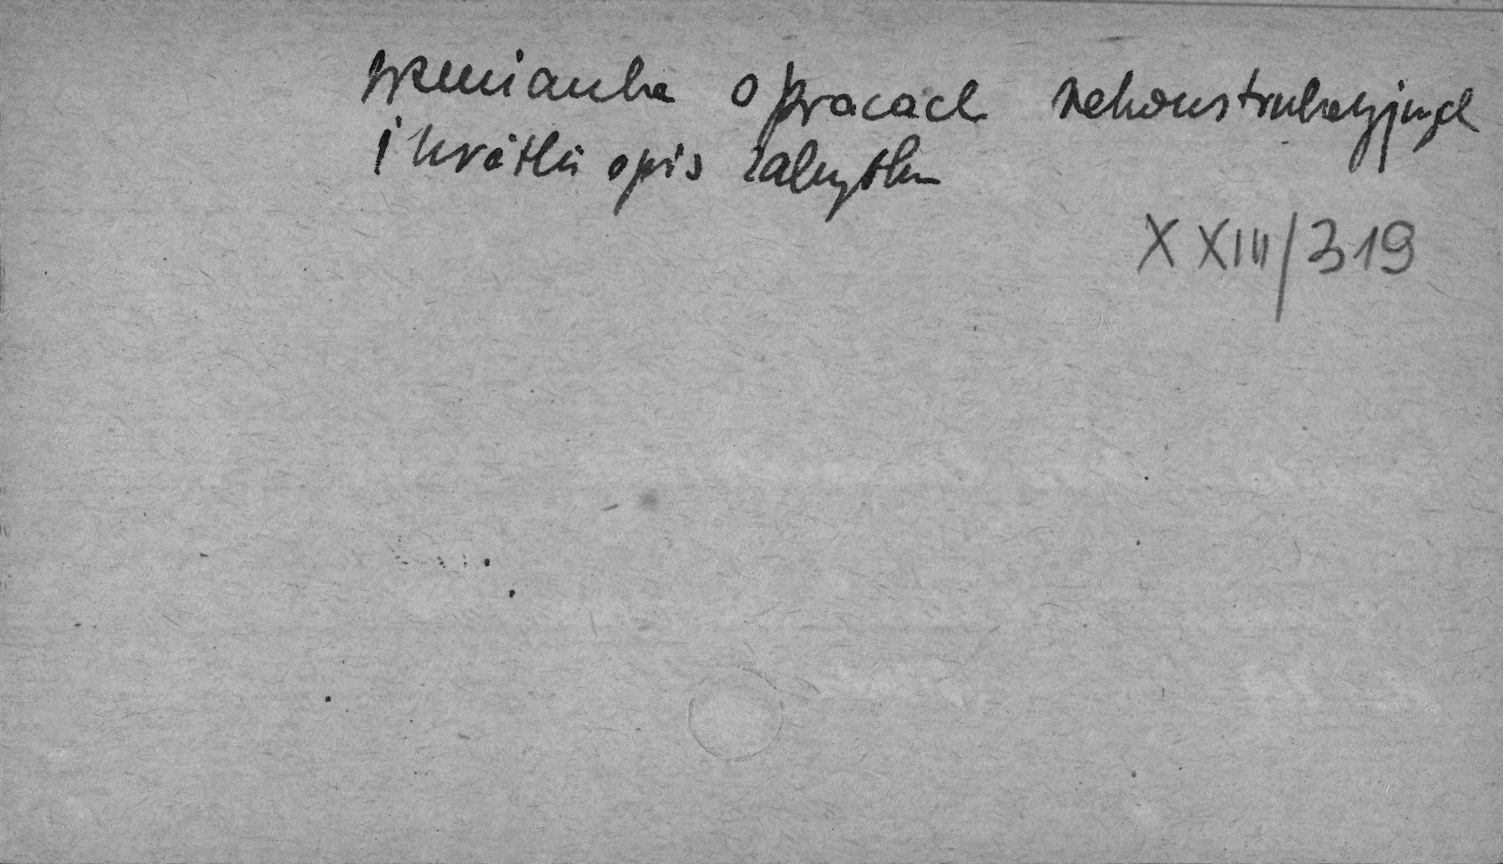 wzmianka o pracach rekonstrukcyjnych
i krótki opis zabytku
XXIII/319